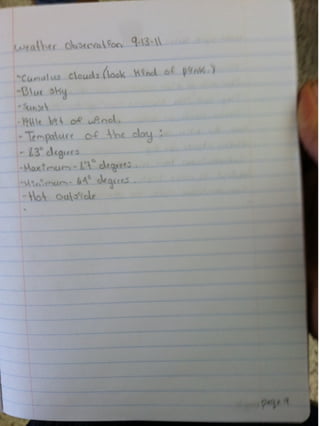 Weather Observation 9-13-11
-Cumulus clouds (look kind of pink.)
-Blue sky
-Sunset
-little bit of wind.
-Tempature of the day:
-63° degrees
-Maximum- 67° degrees.
-Minimum- 61° degrees.
-Hot outside
-
page 9